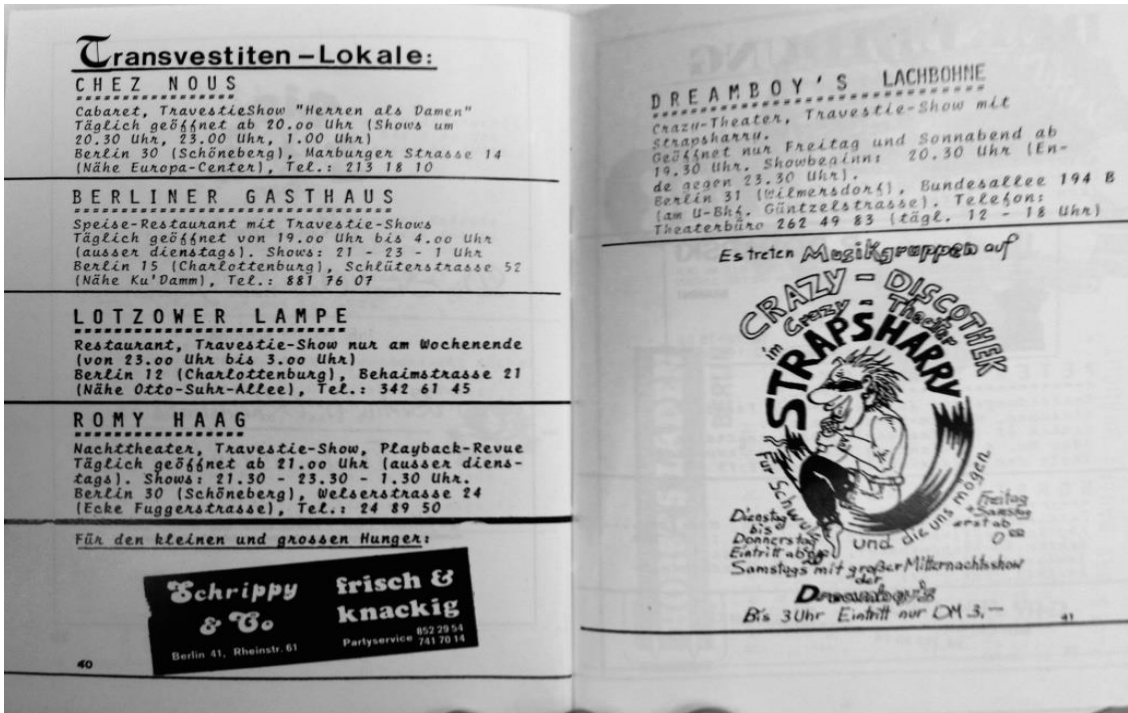 Transvestiten-Lokale:
CHEZ NOUS
Cabaret, TravestieShow "Herren als Damen"
Täglich geöffnet ab 20.oo Uhr (Shows um
20.30 Uhr, 23.00 Uhr, 1.00 Uhr)
Berlin 30 (Schöneberg), Marburger Strasse 14
(Nähe Europa-Center), Tel.: 213 18 10
BERLINER GASTHAUS
Speise-Restaurant mit Travestie-Shows
Täglich geöffnet von 19.oo Uhr bis 4.oo Uhr
(ausser dienstags). Shows: 21 - 23 - 1 Uhr
Berlin 15 (Charlottenburg), Schlüterstrasse 52
(Nähe Ku'Damm), Tel.: 881 76 07
LOTZOWER LAMPE
Restaurant, Travestie-Show nur am Wochenende
(von 23.oo Uhr bis 3.oo Uhr)
Berlin 12 (Charlottenburg), Behaimstrasse 21
(Nähe Otto-Suhr-Allee), Tel.: 342 61 45
ROMY HAAG
Nachttheater, Travestie-Show, Playback-Revue
Täglich geöffnet ab 21.oo Uhr (ausser diens-
tags). Shows: 21.30 - 23.30 - 1.30 Uhr.
Berlin 30 (Schöneberg), Welserstrasse 24
(Ecke Fuggerstrasse), Tel.: 24 89 50
Für den kleinen und grossen Hunger:
Schrippy
& Co
Berlin 41, Rheinstr. 61
frisch &
knackig
Partyservice 852 29 54
741 70 14
40
DREAMBOY'S LACHBOHNE
Crazy-Theater, Travestie-Show mit
Strapsharry.
Geöffnet nur Freitag und Sonnabend ab
19.30 Uhr. Showbeginn: 20.30 Uhr (En-
de gegen 23.30 Uhr).
Berlin 31 (Wilmersdorf), Bundesallee 194 B
(am U-Bhf. Güntzelstrasse). Telefon:
Theaterbüro 262 49 83 (tägl. 12 - 18 Uhr)
Es treten Musikgruppen auf
CRAZY-DISCOTHEK
im Crazy-Theater
STRAPSHARRY
Für Schwule und die uns mögen
Dienstag
bis
Donnerstag
Eintritt ab
Freitag
+ Samstag
erst ab
Samstags mit großer Mitternachtsshow
der
Dreamboy's
Bis 3 Uhr Eintritt nur DM 3,—
41